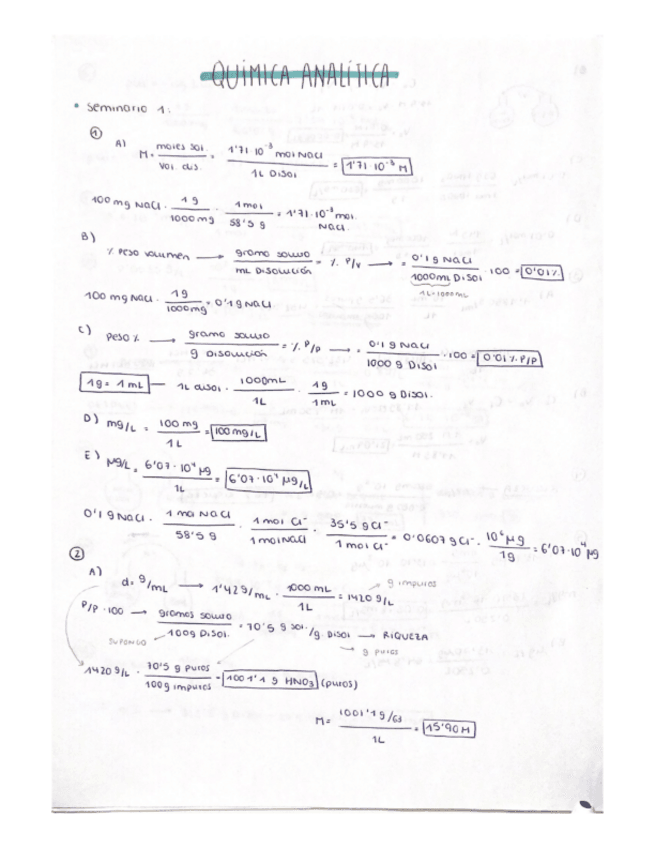 QUÍMICA ANALÍTICA
• Seminario 1:
①
A) M = moles sol. / vol. dis. = 1'71 · 10⁻³ mol NaCl / 1L Disol = 1'71 · 10⁻³ M
100 mg NaCl · 1g / 1000 mg · 1 mol / 58'5 g = 1'71 · 10⁻³ mol. NaCl.
B) % peso volumen → gramo soluto / mL Disolución = % P/V → = 0'1 g NaCl / 1000 mL Disol · 100 = 0'01%
1L = 1000 mL
100 mg NaCl · 1g / 1000 mg = 0'1 g NaCl.
C) Peso % → gramo soluto / g Disolución = % P/P → = 0'1 g NaCl / 1000 g Disol · 100 = 0'01 % P/P
1g = 1 mL — 1L disol · 1000 mL / 1L · 1g / 1 mL = 1000 g Disol.
D) mg/L = 100 mg / 1L = 100 mg/L
E) µg/L = 6'07 · 10⁴ µg / 1L = 6'07 · 10⁴ µg/L
0'1 g NaCl · 1 mol NaCl / 58'5 g · 1 mol Cl⁻ / 1 mol NaCl · 35'5 g Cl⁻ / 1 mol Cl⁻ = 0'0607 g Cl⁻ · 10⁶ µg / 1g = 6'07 · 10⁴ µg
②
A) d = g/mL → 1'42 g/mL · 1000 mL / 1L = 1420 g/L → g impuros
P/P · 100 → gramos soluto / 100g Disol. = 70'5 g sol. / g. Disol → RIQUEZA
SUPONGO
→ g puros
1420 g/L · 70'5 g puros / 100 g impuros = 1001'1 g HNO₃ (puros)
M = 1001'1 g/63 / 1L = 15'90 M